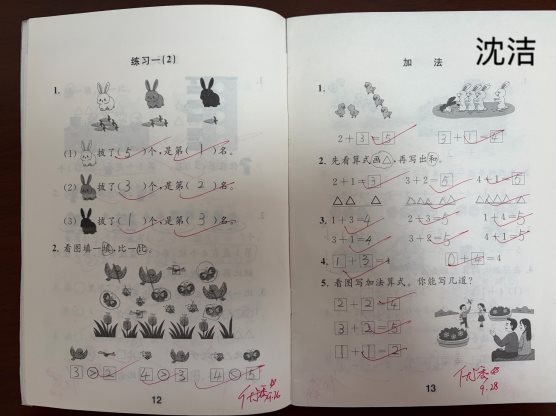 练习一(2)
1.
(1) 拔了(5)个,是第(1)名。
(2) 拔了(3)个,是第(2)名。
(3) 拔了(1)个,是第(3)名。
2. 看图填一填,比一比。
3>2 4>3 4<5
9.26
12
沈洁
加 法
1.
2+3=5 3+1=4
2. 先看算式画△,再写出和。
2+1=3 3+2=5 4+1=5
3. 1+3=4 2+3=5 1+4=5
3+1=4 3+2=5 4+1=5
4. 1+3=4 0+4=4
5. 看图写加法算式。你能写几道?
2+2=4
3+2=5
1+1=2
9.28
13